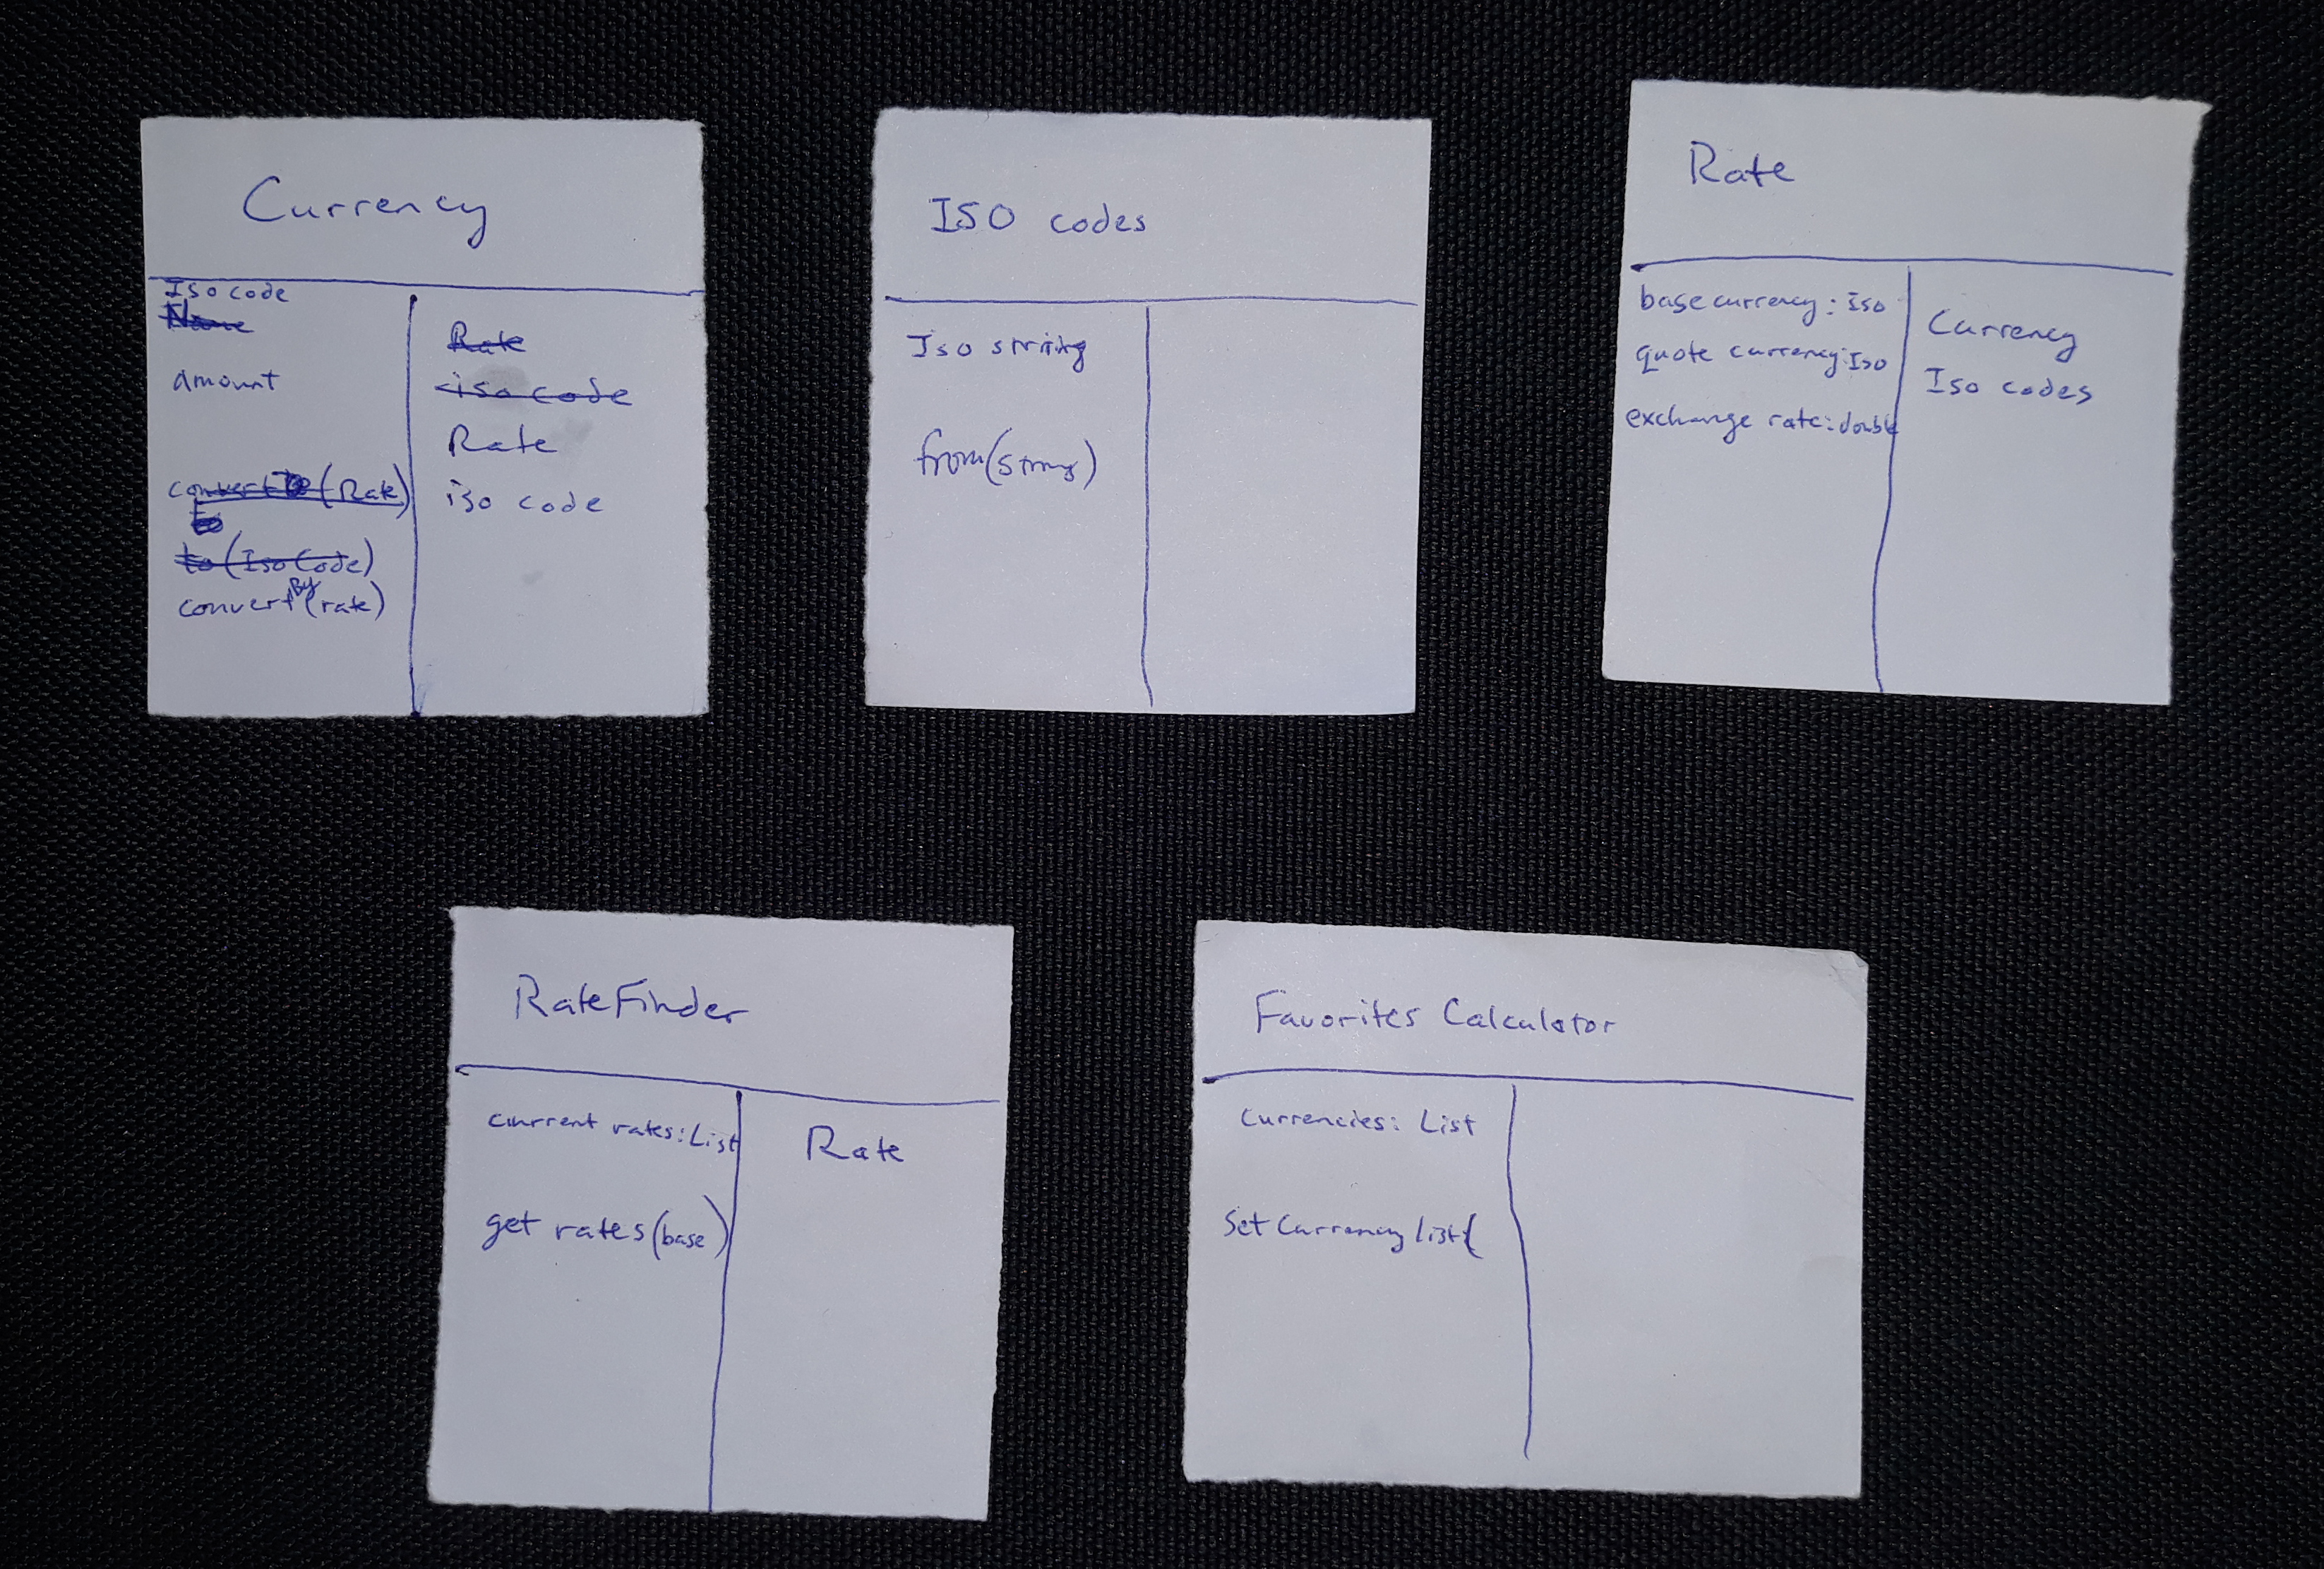 Currency
Iso code
Name
amount
convertTo(Rate)
to
to(IsoCode)
By
convert(rate)
Rate
iso code
Rate
iso code
ISO codes
Iso string
from(String)
Rate
base currency: Iso
quote currency: Iso
exchange rate: double
Currency
Iso codes
RateFinder
current rates: List
get rates(base)
Rate
Favorites Calculator
Currencies: List
Set Currency list(